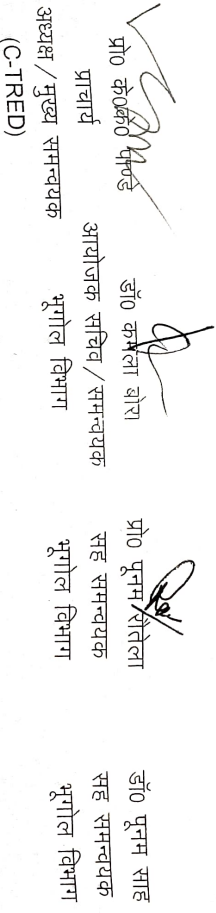 प्रो० के०के० पाण्डे
प्राचार्य
अध्यक्ष/मुख्य समन्वयक
(C-TRED)
डॉ० कमला बोरा
आयोजक सचिव/समन्वयक
भूगोल विभाग
प्रो० पूनम रौतेला
सह समन्वयक
भूगोल विभाग
डॉ० पूनम साह
सह समन्वयक
भूगोल विभाग